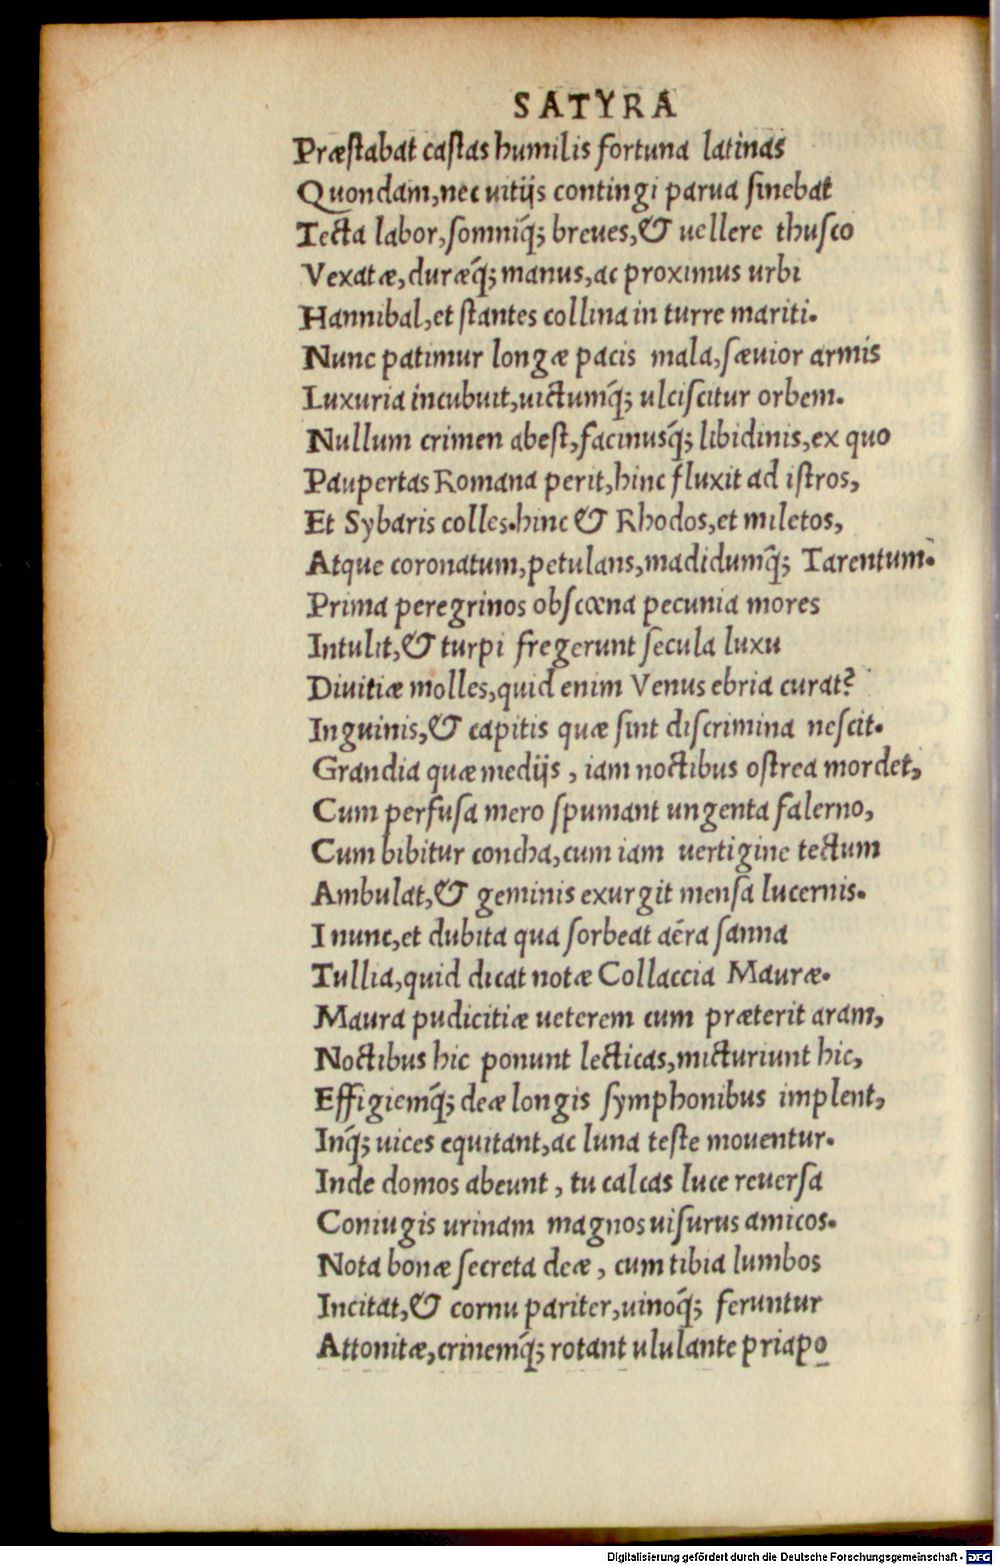 SATYRA
Præstabat castas humilis fortuna latinas
Quondam,nec uitijs contingi parua sinebat
Tecta labor,somniq̃; breues,& uellere thusco
Vexatæ,duræq̃; manus,ac proximus urbi
Hannibal,et stantes collina in turre mariti.
Nunc patimur longæ pacis mala,sæuior armis
Luxuria incubuit,uictumq̃; ulciscitur orbem.
Nullum crimen abest,facinusq̃; libidinis,ex quo
Paupertas Romana perit,hinc fluxit ad istros,
Et Sybaris colles.hinc & Rhodos,et miletos,
Atque coronatum,petulans,madidumq̃; Tarentum.
Prima peregrinos obscœna pecunia mores
Intulit,& turpi fregerunt secula luxu
Diuitiæ molles,quid enim Venus ebria curat?
Inguinis,& capitis quæ sint discrimina nescit.
Grandia quæ medijs , iam noctibus ostrea mordet,
Cum perfusa mero spumant ungenta falerno,
Cum bibitur concha,cum iam uertigine tectum
Ambulat,& geminis exurgit mensa lucernis.
I nunc,et dubita qua sorbeat aẽra sanna
Tullia,quid dicat notæ Collaccia Mauræ.
Maura pudicitiæ ueterem cum præterit aram,
Noctibus hic ponunt lecticas,micturiunt hic,
Effigiemq̃; deæ longis symphonibus implent,
Inq̃; uices equitant,ac luna teste mouentur.
Inde domos abeunt , tu calcas luce reuersa
Coniugis urinam magnos uisurus amicos.
Nota bonæ secreta deæ , cum tibia lumbos
Incitat,& cornu pariter,uinoq̃; feruntur
Attonitæ,crinemq̃; rotant ululante priapo
Digitalisierung gefördert durch die Deutsche Forschungsgemeinschaft - DFG